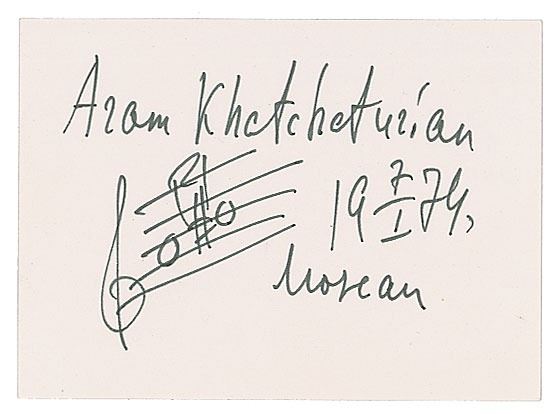 Aram Khatchaturian
19 7/I 74,
Moscau